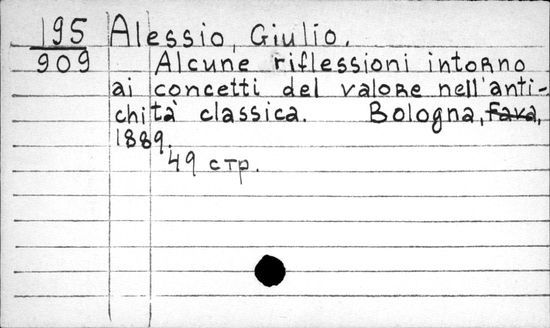 195 Alessio, Giulio.
909 Alcune riflessioni intorno
ai concetti del valore nell'anti-
chità classica. Bologna, Fava,
1889.
49 стр.